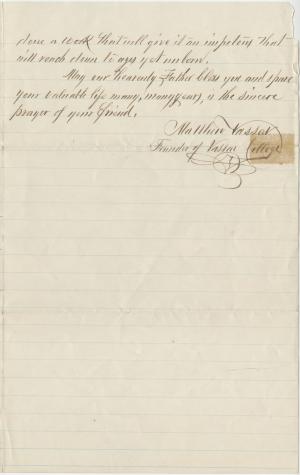 done a work that will give it an impetus that
will reach down to ages yet unborn.
May our Heavenly Father bless you and spare
your valuable life many, many years, is the sincere
prayer of your friend.
Matthew Vassar
Founder of Vassar College